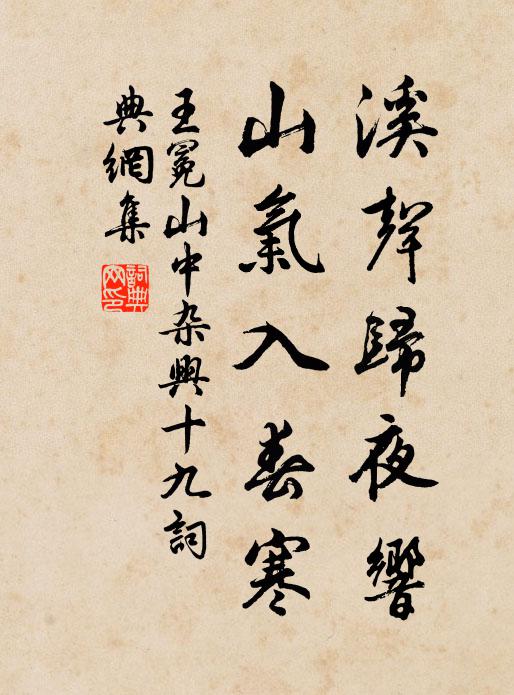 溪聲歸夜響
山氣入春寒
王冕山中杂興十九詞
典網集
詞典網印